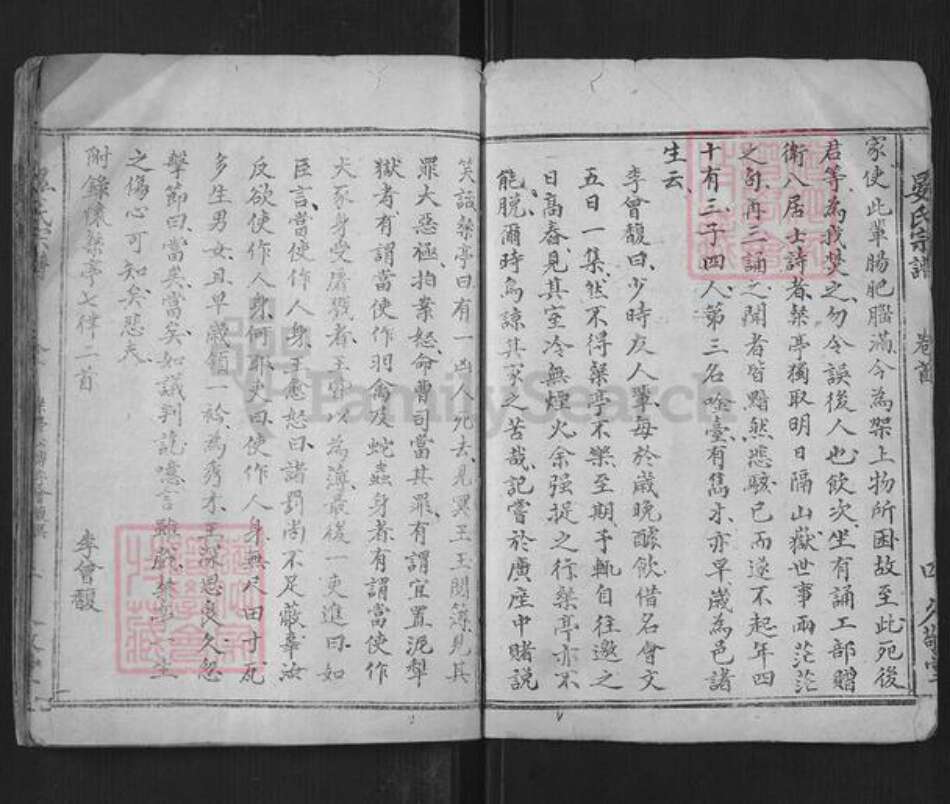 晏氏宗譜 卷首 四 久敬堂
家使此輩腸肥腦滿今為架上物所困故至此死後
君等為我焚之勿令誤後人也飲次坐有誦工部贈
衛八居士詩者桬亭獨取明日隔山嶽世事兩茫茫
之句再三誦之聞者皆黯然悲駭已而遂不起年四
十有三子四人第三名唫臺有雋才亦早歲為邑諸
生云
李會馥曰少時友人輩每於歲晚醵飲借名會文
五日一集然不得桬亭不樂至期予輒自往邀之
日高舂見其室冷無煙火余强捉之行桬亭亦不
能脫爾時為諒其家之苦哉記嘗於廣座中賭說
笑話桬亭曰有一凶人死去見冥王王閱簿見其
罪大惡極拍案怒命曹司當其罪有謂宜置泥犁
獄者有謂當使作羽禽及蛇蟲身者有謂當使作
犬豕身受屠戮者王皆以為薄最後一吏進曰如
臣言當使作人身王愈怒曰諸罰尚不足蔽辜汝
反欲使作人身何耶吏曰使作人身無尺田寸瓦
多生男女且早歲領一衿為秀才王深思良久忽
擊節曰當矣當矣如議判訖噫言雖戲桬亭一生
之傷心可知矣悲夫
附錄懷桬亭七律二首 李會馥
FamilySearch